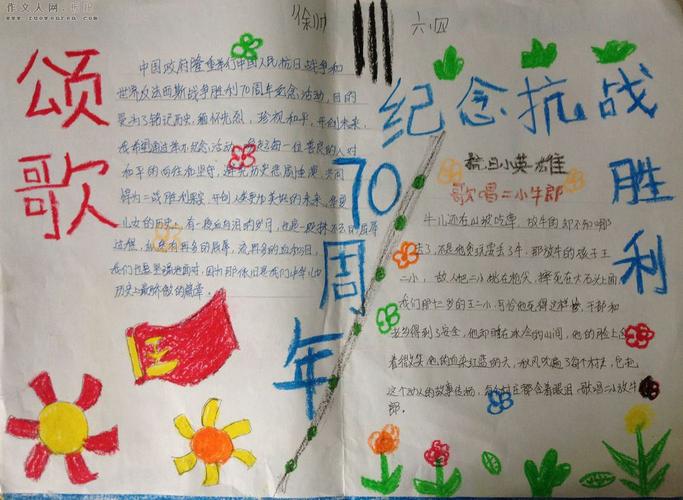 作文人网
www.zuowenren.com
六.四
颂歌
纪念抗战胜利70周年
中国政府隆重举行中国人民抗日战争和
世界反法西斯战争胜利70周年纪念活动,目的
是为了铭记历史,缅怀先烈,珍视和平,开创未来,
我希望通过举办纪念活动,唤起每一位善良的人对
和平的向往和坚守,避免历史悲剧重演,共同
得为二战胜利果实,开创人类更加美好的未来,华夏
儿女的历史,有一段血与泪的岁月,也是一段抹不去的屈辱
过程,
我们也要坚强地面对,因为那依旧是我们中华儿女
历史上最骄傲的篇章。
抗日小英雄
歌唱二小牛郎
牛儿还在山坡吃草,放牛的却不知哪
去了,不是他贪玩丢了牛,那放牛的孩子王
二小,敌人把二小挑在枪尖,摔死在大石头上面
我们那十三岁的王二小,可怜他死得这样惨,干部和
老乡得到了安全,他却睡在冰冷的山间,他的脸上
着微笑,他的血染红蓝的天,秋风吹遍了每个村庄,它把
这个动人的故事传扬,每个村庄都含着眼泪,歌唱二小放牛
郎。